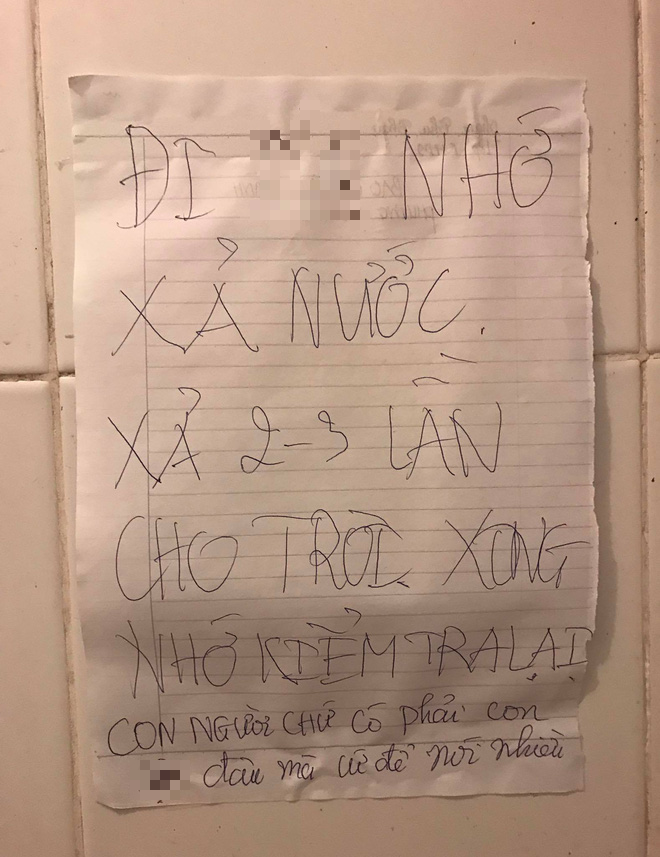 ĐI NHỚ
XẢ NƯỚC.
XẢ 2-3 LẦN
CHO TRÔI XONG
NHỚ KIỂM TRA LẠI
CON NGƯỜI CHỨ CÓ phải con
đâu mà cứ để nói nhiều